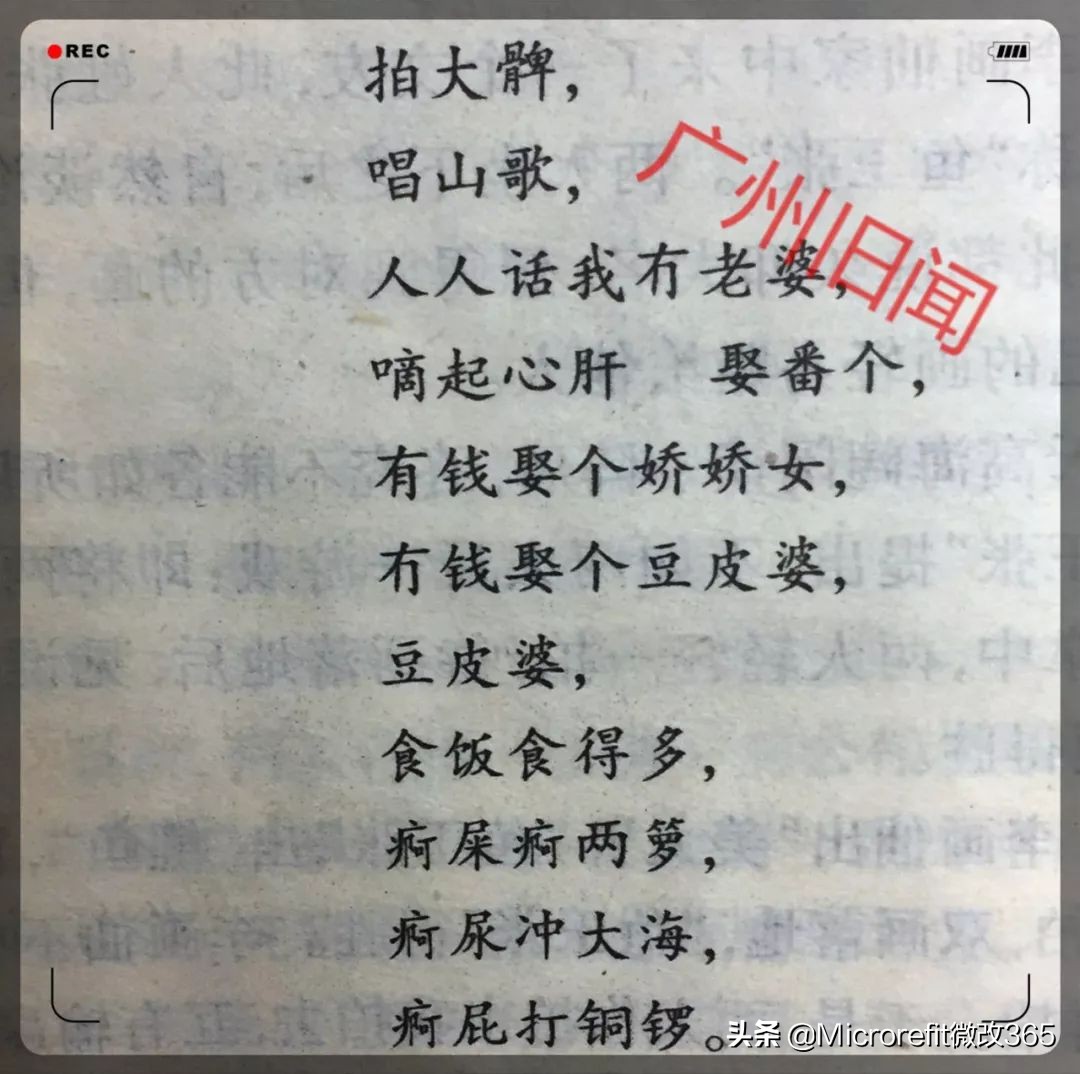 REC
拍大髀，
唱山歌，
广州旧闻
人人话我冇老婆，
嘀起心肝　娶番个，
有钱娶个娇娇女，
冇钱娶个豆皮婆，
豆皮婆，
食饭食得多，
痾屎痾两箩，
痾尿冲大海，
痾屁打铜锣。
头条 @Microrefit微改365